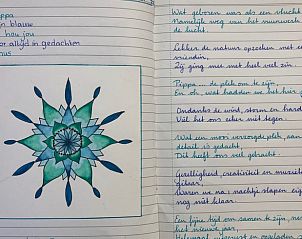 Peppa
in blauwe
hou jou
altijd in gedachten
Wat geboren was als een vlucht
Namelijk weg van het vuurwerk
de lucht.
Lekker de natuur opzoeken met een
vriendin,
Zij ging mee met heel veel zin.
Peppa ... de plek om te zijn,
En oh, wat hadden we het hier
Ondanks de wind, storm en
Viel het ons zeker niet tegen.
Wat een mooi verzorgde plek, aan
detail is gedacht,
Dit heeft ons veel gebracht.
Gezelligheid, creativiteit en
Waren we na 1 nachtje slapen
nog niet klaar.
Een fijne tijd om samen te zijn,
het nieuwe jaar,
Helemaal uitgerust en opgeladen